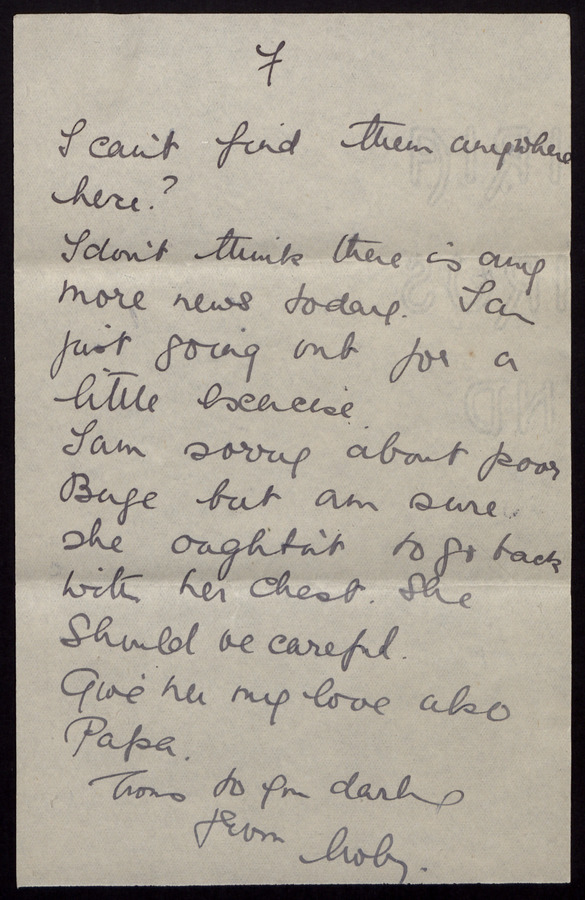 7
I can't find them anywhere
here?
I don't think there is any
more news today. I am
just going out for a
little exercise
I am sorry about poor
Buge but am sure
she oughtn't to go back
with her chest. She
Should be careful.
Give her my love also
Papa.
Tons to you darling
from